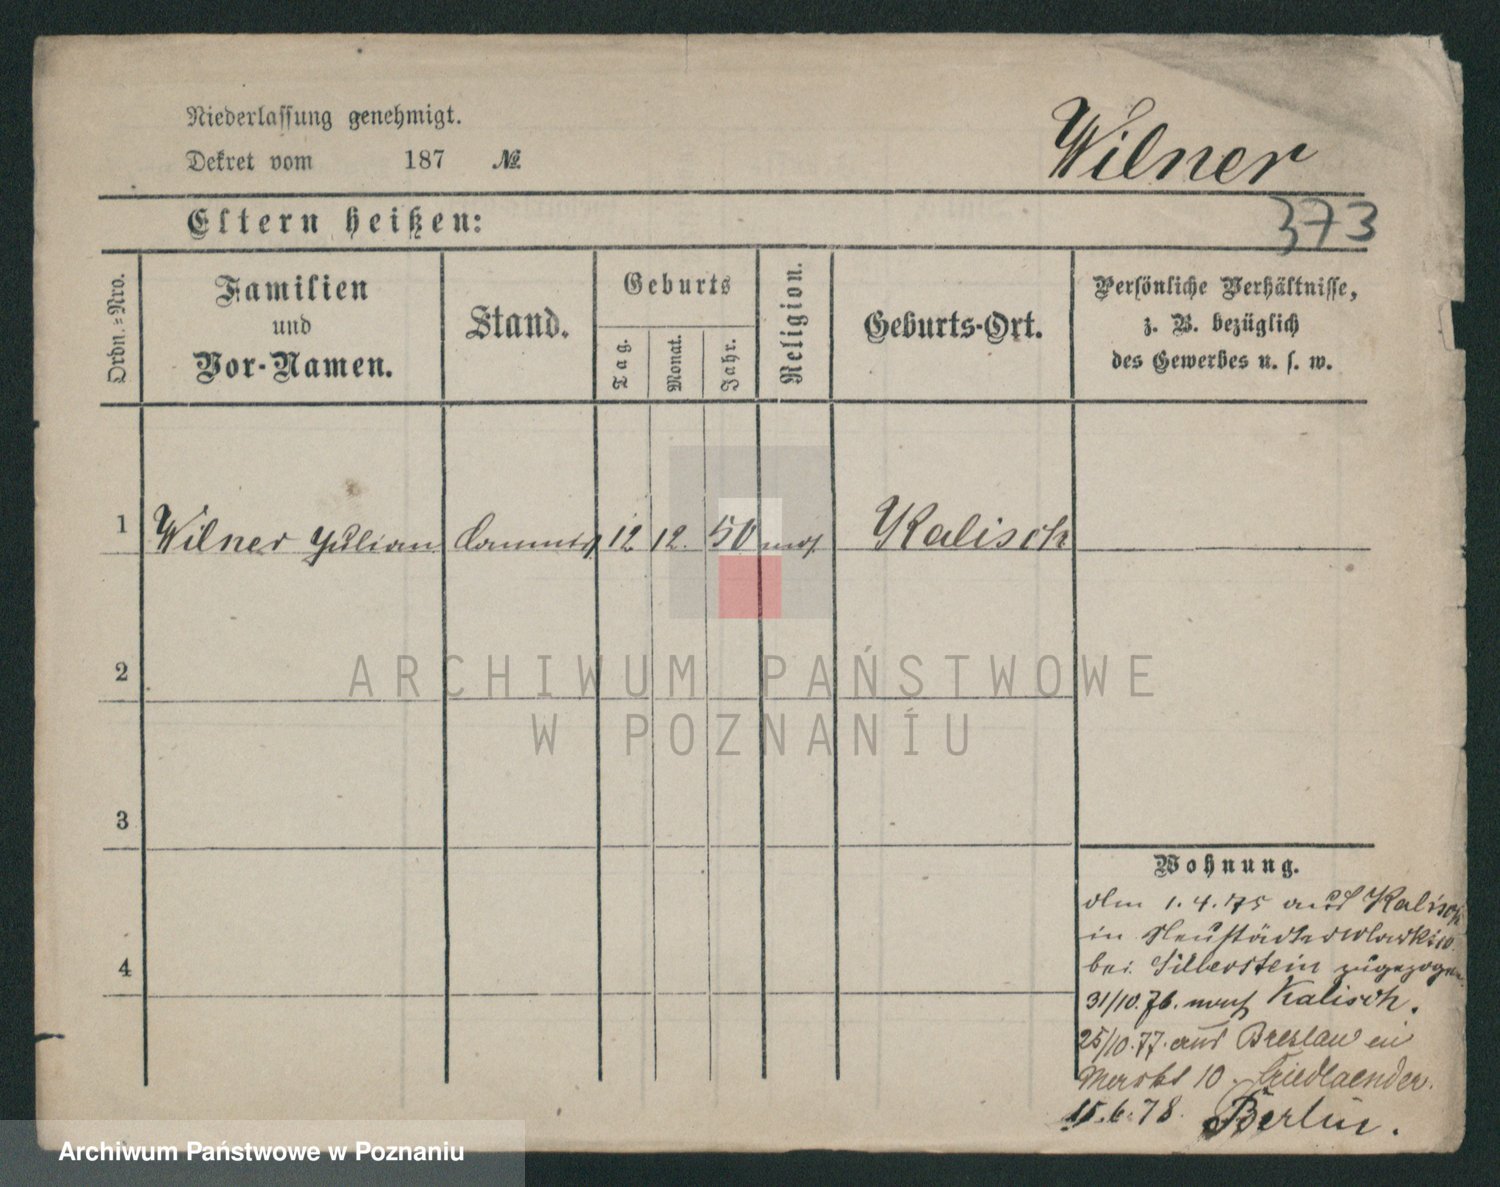 Niederlassung genehmigt.
Dekret vom 187 №
Wilner
Eltern heißen:
373
Ordn.=Nro.
Familien
und
Vor-Namen.
Stand.
Geburts
Tag.
Monat.
Jahr.
Religion.
Geburts-Ort.
Persönliche Verhältnisse,
z. B. bezüglich
des Gewerbes u. s. w.
1 Wilner Julian Commis 12 12. 50 mos. Kalisch
2
ARCHIWUM PAŃSTWOWE
W POZNANIU
3
4
Wohnung.
1.4.75 aus Kalisch
in Neustädter Markt 10
bei Silberstein zugezogen
31/10.76. nach Kalisch.
25/10.77. aus Breslau in
Markt 10. Friedlaender.
15.6.78. Berlin.
Archiwum Państwowe w Poznaniu